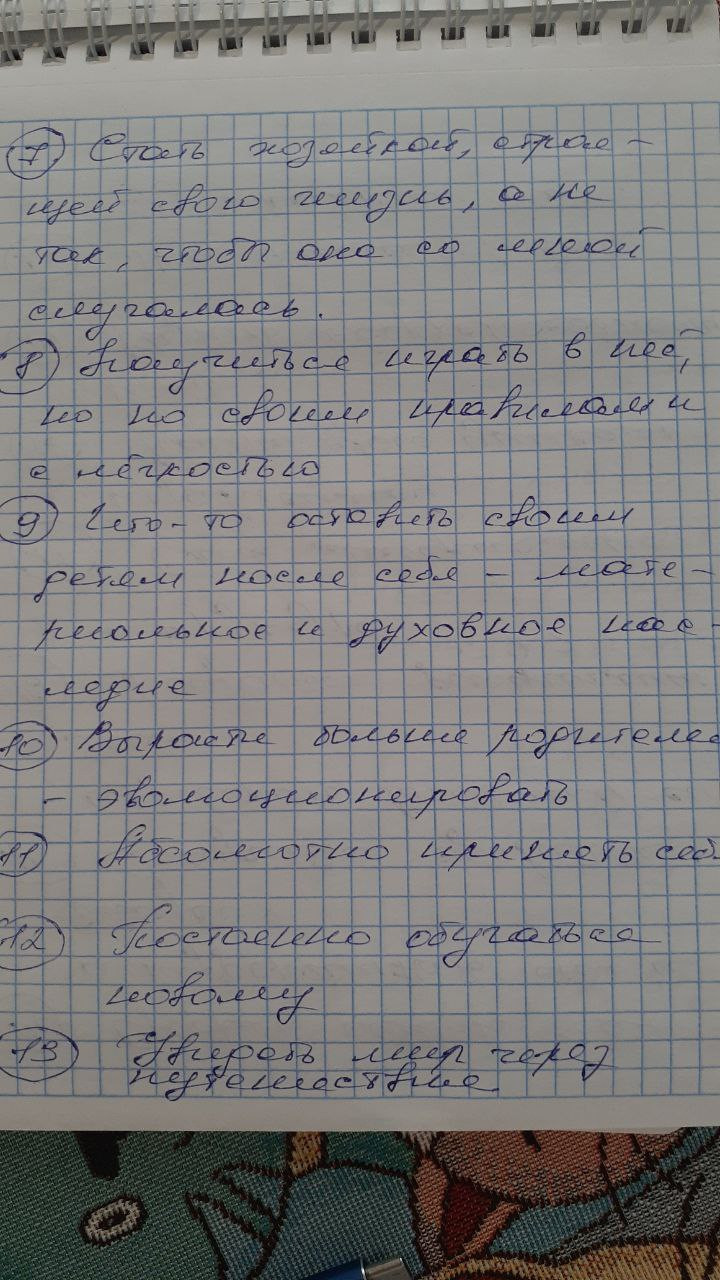 7 Стать хозяйкой, строю-
щей свою жизнь, а не
так, чтобы она со мной
случалась.
8 Научиться играть в неё,
но по своим правилам и
с лёгкостью
9 Что-то оставить своим
детям после себя – мате-
риальное и духовное нас-
ледие
10 Вырасти больше родителей
– эволюционировать
11 Абсолютно принять себя
12 Постоянно обучаться
новому
13 Увидеть мир через
путешествие